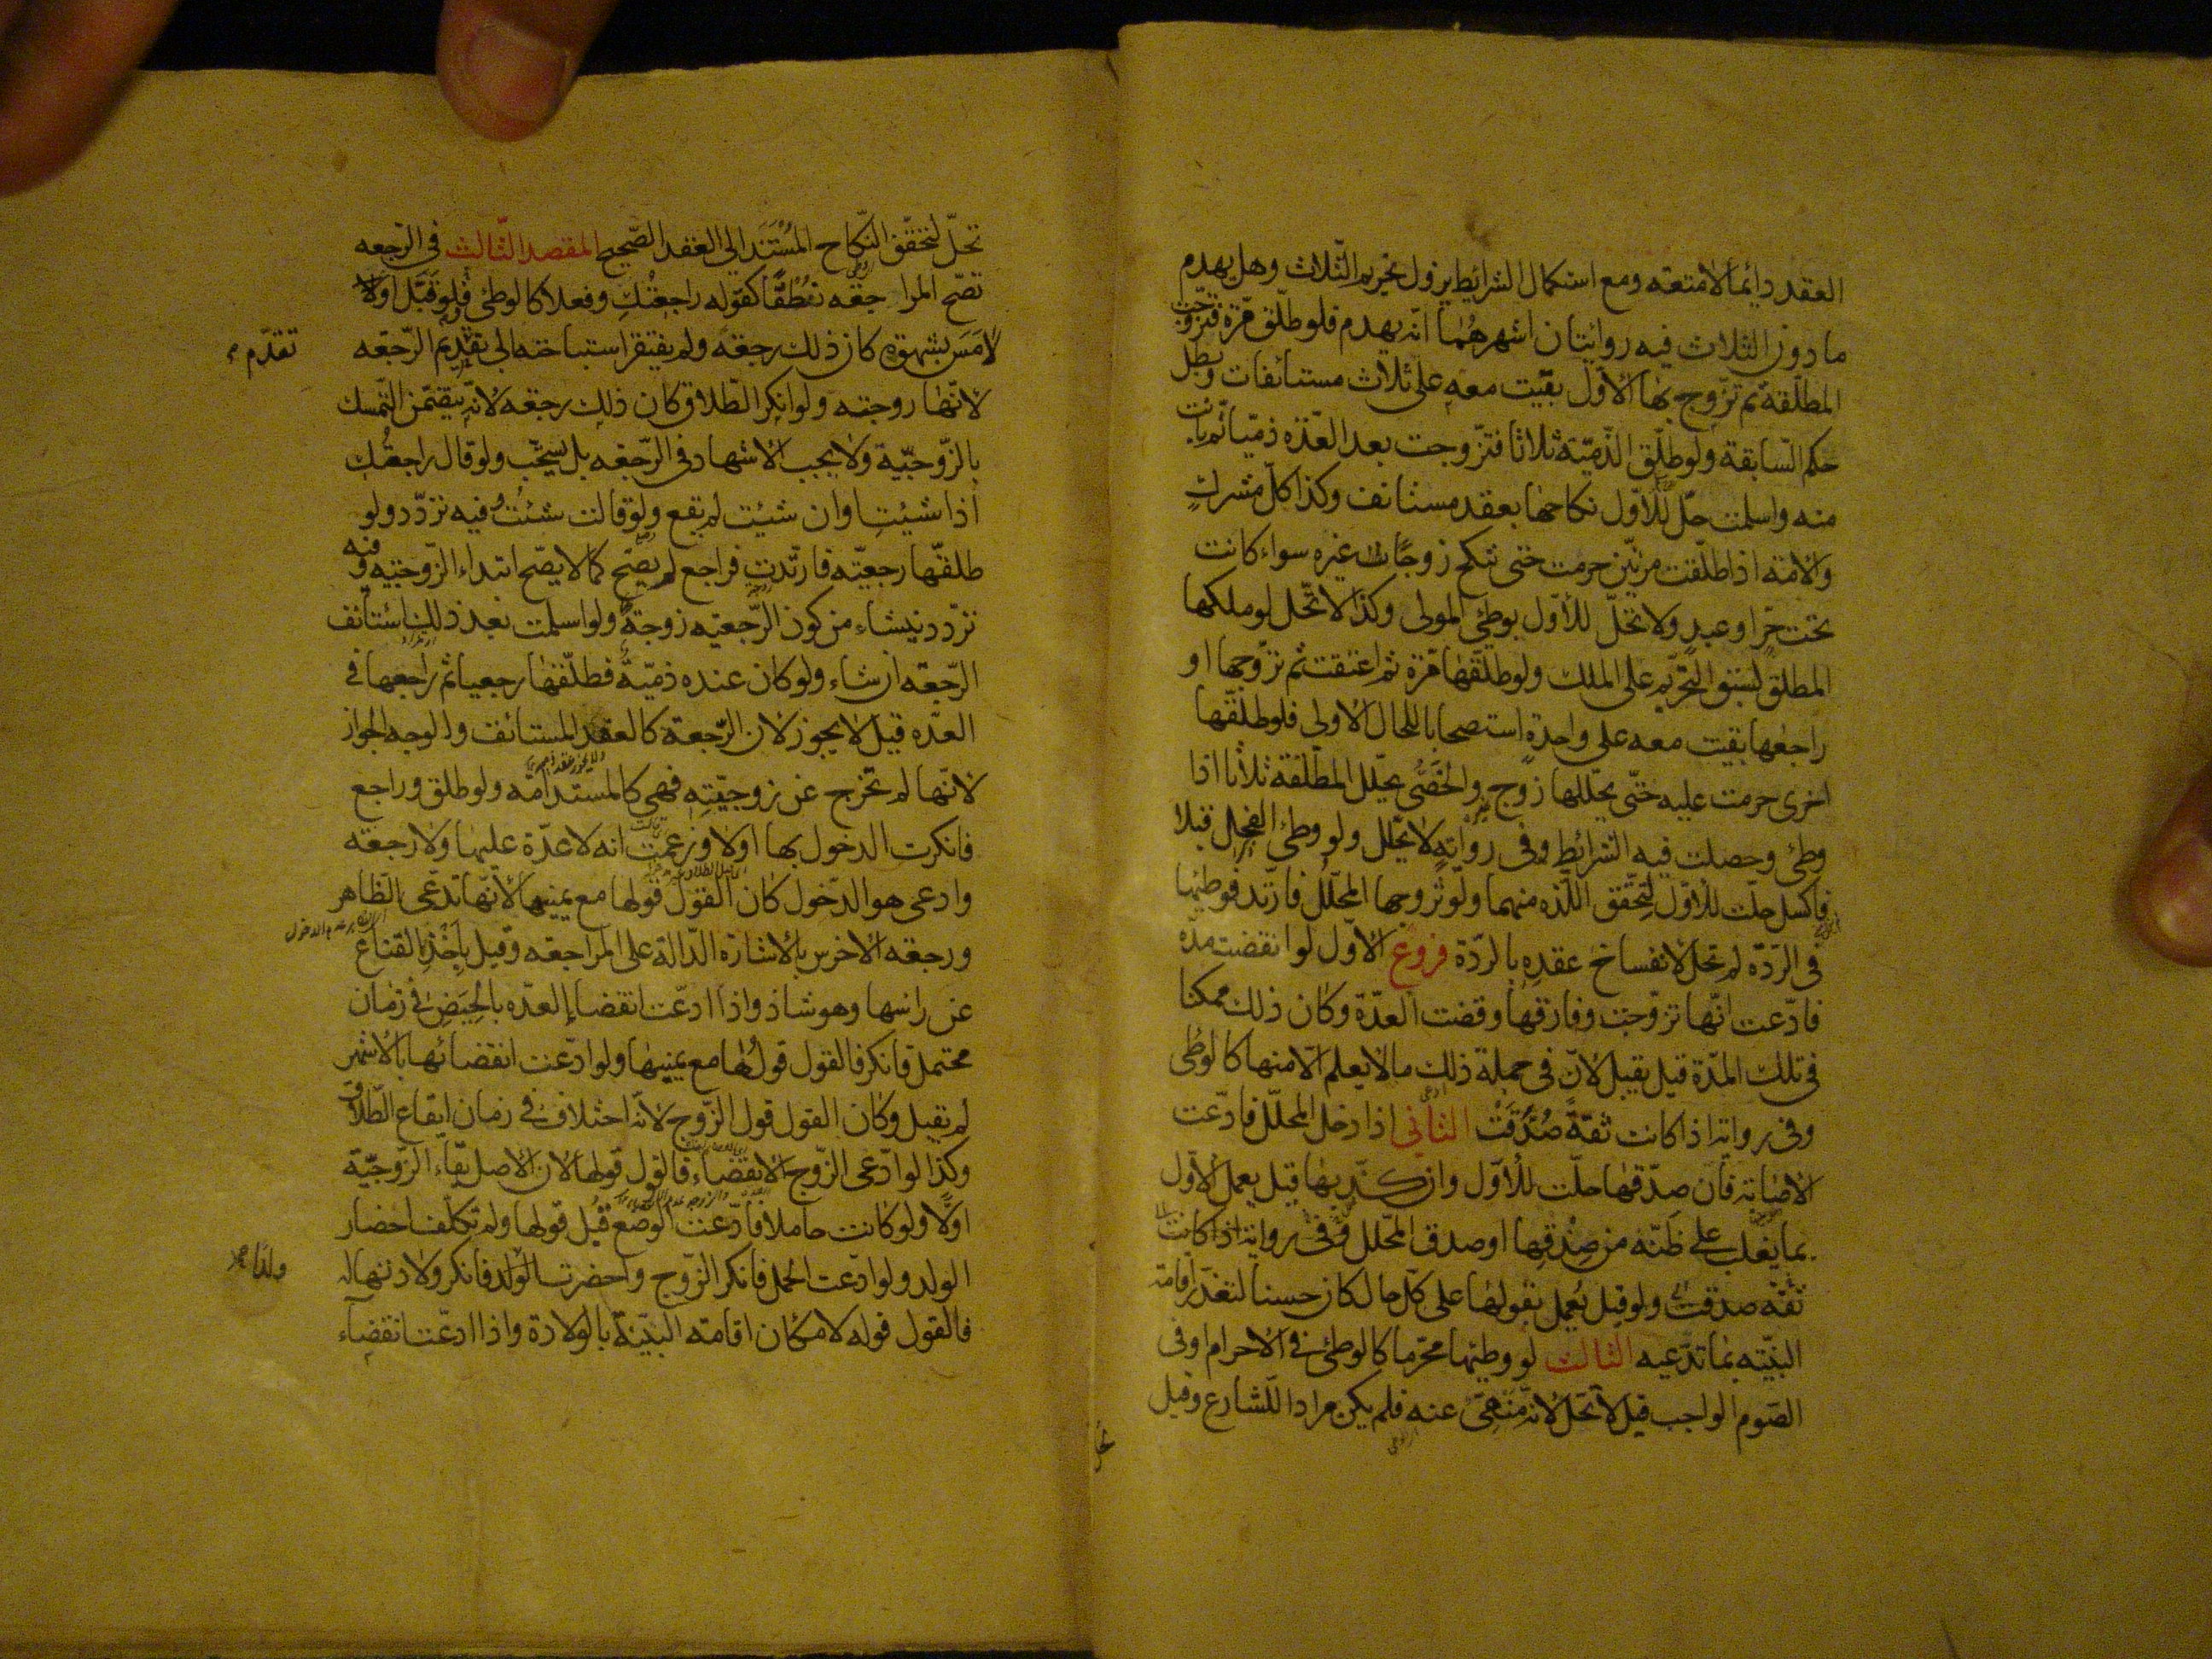 العقد دائما لا متعه ومع استكمال الشرائط يزول تحريم الثلاث وهل يهدم
ما دون الثلاث فيه روايتان اشهرهما انه يهدم فلو طلق مرة فتزوجت
المطلقة ثم تزوج بها الأول بقيت معه على ثلاث مستأنفات وبطل
حكم السابقة ولو طلق الذمية ثلاثا فتزوجت بعد العدة ذميا ثم بانت
منه واسلمت حل للأول نكاحها بعقد مستانف وكذا كل مشرك
والأمة اذا طلقت مرتين حرمت حتى تنكح زوجا غيره سواء كانت
تحت حر او عبد ولا تحل للأول بوطئ المولى وكذا لا تحل لو ملكها
المطلق لسبق التحريم على الملك ولو طلقها مرة ثم اعتقت ثم تزوجها او
راجعها بقيت معه على واحدة استصحابا للحال الاولى فلو طلقها
اخرى حرمت عليه حتى يحللها زوج والخصى يحلل المطلقة ثلاثا اذا
وطئ وحصلت فيه الشرائط وفى رواية لا يحلل ولو وطئ الفحل قبلا
فاكسل حلت للأول لتحقق اللذه منهما ولو تزوجها المحلل فارتد فوطئها
فى الردة لم تحل لانفساخ عقده بالردة فروع الاول لو انقضت مدة
فادعت انها تزوجت وفارقها وقضت العدة وكان ذلك ممكنا
فى تلك المدة قيل يقبل لان فى جملة ذلك ما لا يعلم الا منها كالوطئ
وفى رواية اذا كانت ثقة صدقت الثاني اذا دخل المحلل فادعت
الاصابة فان صدقها حلت للأول وان كذبها قيل يعمل الأول
بما يغلب على ظنه من صدقها او صدق المحلل وفى رواية اذا كانت
ثقة صدقت ولو قيل يعمل بقولها على كل حال كان حسنا لتعذر اقامة
البينه بما تدعيه الثالث لو وطئها محرما كالوطئ فى الاحرام او فى
الصوم الواجب قيل لا تحل لانه منهى عنه فلم يكن مرادا للشارع وقيل
تحل
تحل لتحقق النكاح المستند الى العقد الصحيح المقصد الثالث فى الرجعه
تصح المراجعه نطقا كقوله راجعتك وفعلا كالوطئ ولو قبل او
لامس بشهوة كان ذلك رجعة ولم يفتقر استباحته الى تقديم الرجعه
تقدم
لانها زوجته ولو انكر الطلاق كان ذلك رجعه لانه يتضمن التمسك
بالزوجية ولا يجب الاشهاد فى الرجعه بل يستحب ولو قال راجعتك
اذا شئت او ان شئت لم يقع ولو قالت شئت فيه تردد ولو
طلقها رجعيه فارتدت فراجع لم يصح كما لا يصح ابتداء الزوجيه وفيه
تردد ينشاء من كون الرجعيه زوجة ولو اسلمت بعد ذلك استأنف
الرجعة ان شاء ولو كان عنده ذمية فطلقها رجعيا ثم راجعها فى
العدة قيل لا يجوز لان الرجعة كالعقد المستأنف والوجه الجواز
لانها لم تخرج عن زوجيته فهى كالمستدامة ولو طلق وراجع
فانكرت الدخول بها اولا وزعمت انه لا عدة عليها ولا رجعة
وادعى هو الدخول كان القول قولها مع يمينها لأنها تدعى الظاهر
ورجعة الاخرس بالاشارة الدالة على المراجعه وقيل باخذ القناع
عن راسها وهو شاذ واذا ادعت انقضاء العدة بالحيض فى زمان
محتمل فانكر فالقول قولها مع يمينها ولو ادعت انقضائها بالاشهر
لم تقبل وكان القول قول الزوج لأنه اختلاف فى زمان ايقاع الطلاق
وكذا لو ادعى الزوج الانقضاء فالقول قولها لان الاصل بقاء الزوجية
اولا ولو كانت حاملا فادعت الوضع قبل قولها ولم تكلف احضار
الولد ولو ادعت الحمل فانكر الزوج واحضرت الولد فانكر ولادتها له
ولدا
فالقول قوله لامكان اقامة البينة بالولادة واذا ادعت انقضاء